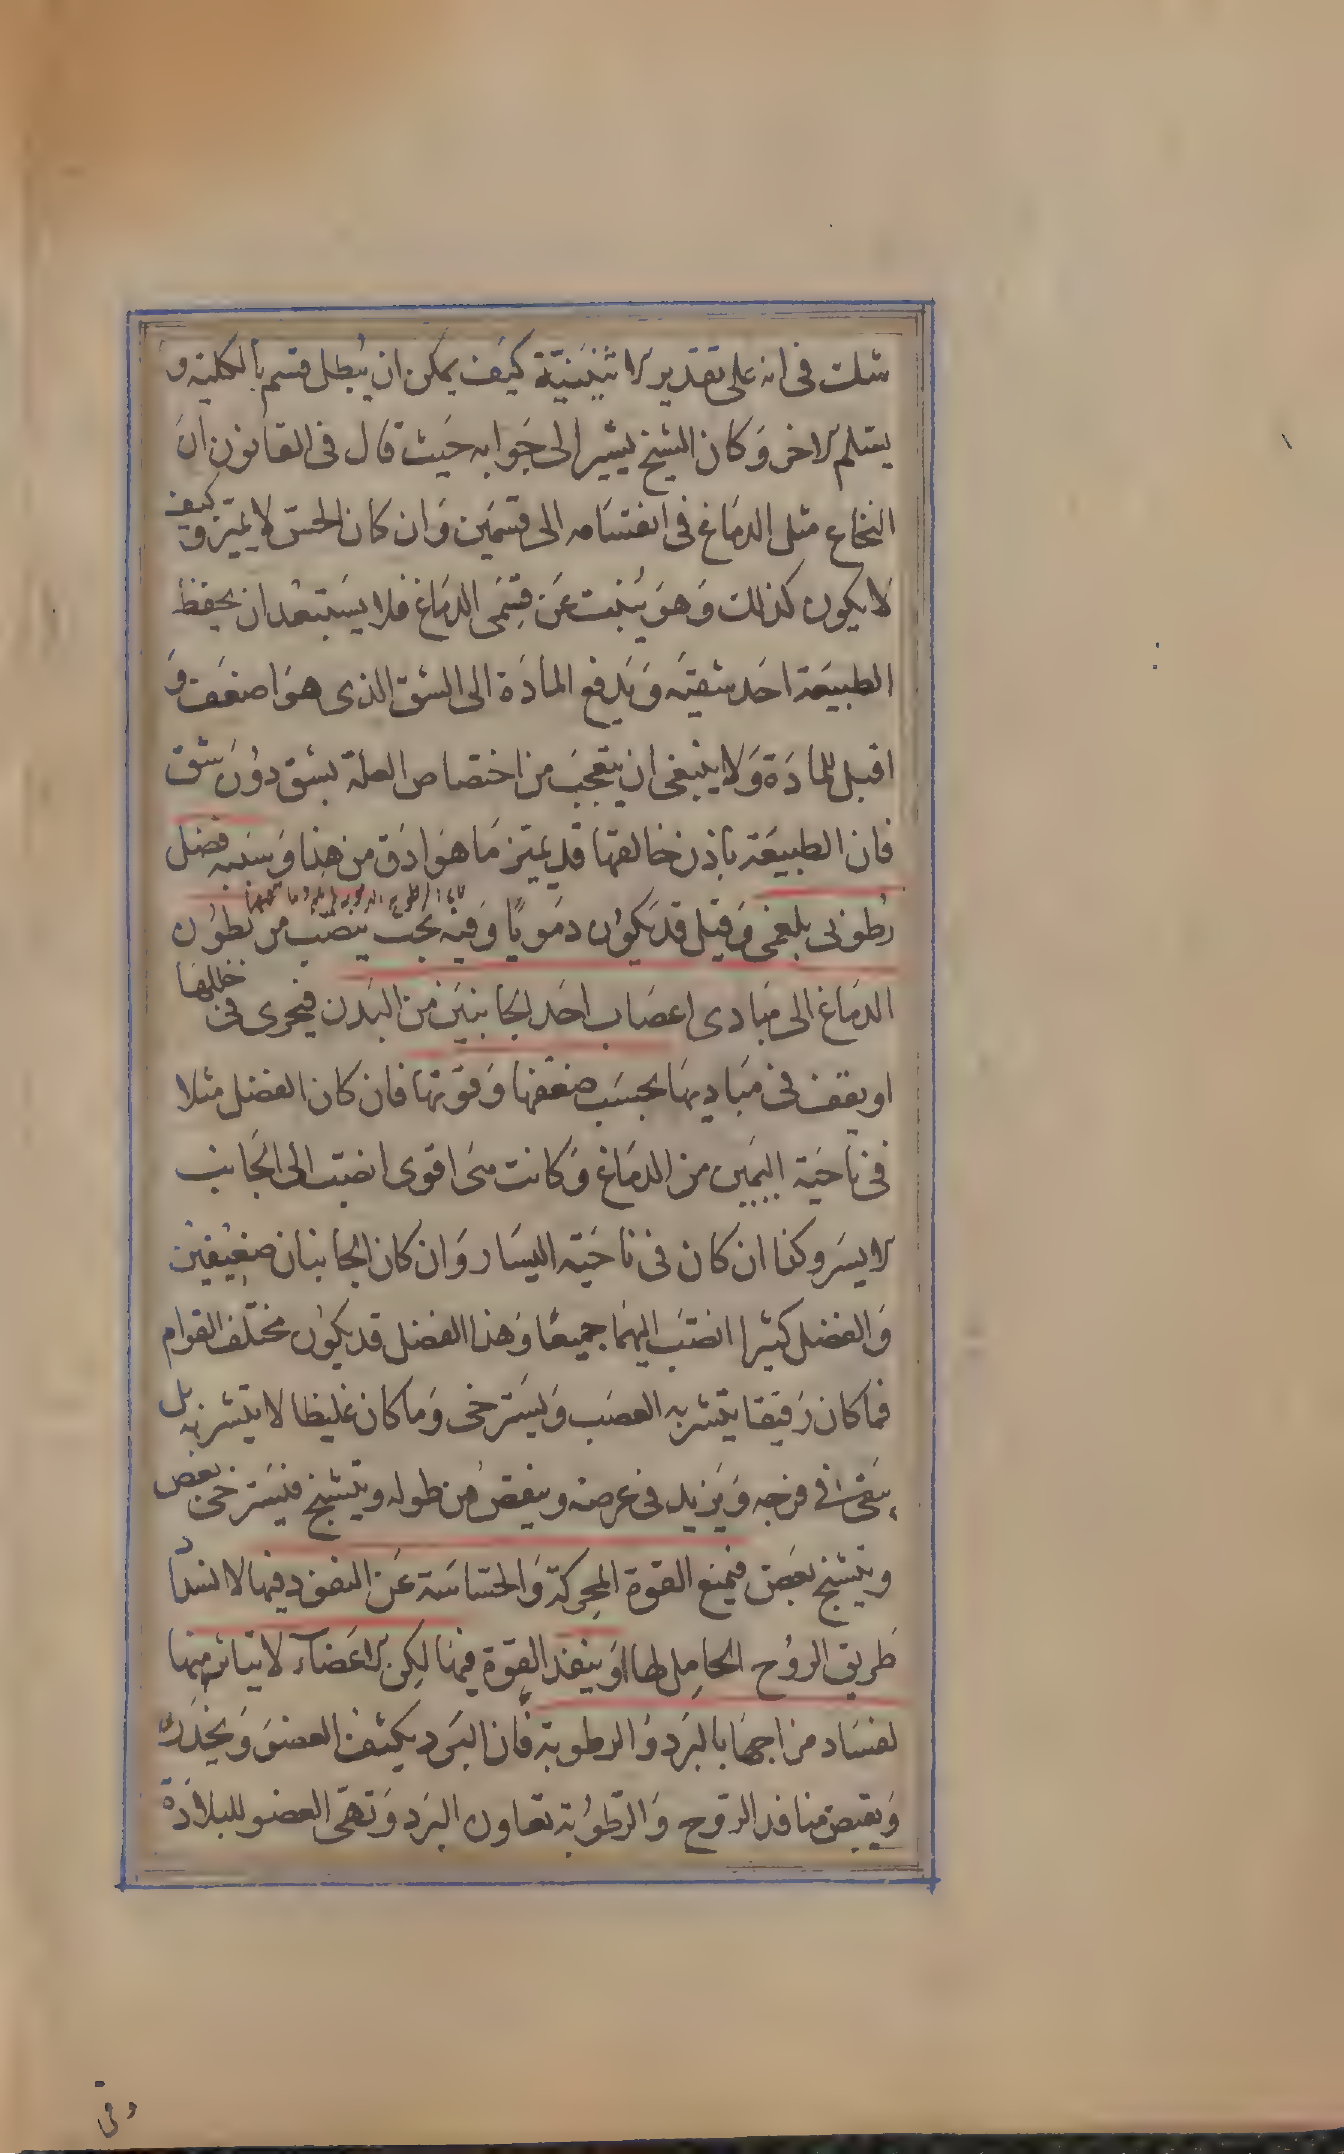 شك فى انه على تقدير الاثنينية كيف يمكن ان يبطل قسم بالكلية و
يسلم الاخر وكان الشيخ يشير الى جوابه حيث قال فى القانون ان
النخاع مثل الدماغ فى انقسامه الى قسمين وان كان الحس لا يميزه وكيف
لا يكون كذلك وهو ينبت عن قسمى الدماغ فلا يستبعد ان يحفظ
الطبيعة احد شقيه ويدفع المادة الى الشق الذى هو اضعف و
اقبل للمادة ولا ينبغى ان يتعجب من اختصاص العلة بشق دون شق
فان الطبيعة باذن خالقها قد يميز ما هو ادق من هذا وسببه فضل
رطوبى بلغمى وقيل قد يكون دمويا وفيه بحث ينصب من بطون
الدماغ الى مبادى اعصاب احد الجانبين من البدن فيجرى فى خللها
او يقف فى مباديها بحسب ضعفها وقوتها فان كان الفضل مثلا
فى ناحية اليمين من الدماغ وكانت هى اقوى انصب الى الجانب
الايسر وكذا ان كان فى ناحية اليسار وان كان الجانبان ضعيفين
والفضل كثيرا انصب اليهما جميعا وهذا الفضل قد يكون مختلف القوام
فما كان رقيقا يتشربه العصب ويسترخى وما كان غليظا لا يتشربه بل
يبقى فى فرجه ويزيد فى عرضه وينقص من طوله ويتشنج فيسترخى بعض
ويتشنج بعض فيمنع القوة المحركة والحساسة عن النفوذ فيها لانسداد
طريق الروح الحامل لها او ينفذ القوة فيها لكن الاعضاء لا يتاثر منها
لفساد مزاجها بالبرد والرطوبة فان البرد يكثف العضو ويخدره
ويقبض منافذ الروح والرطوبة تعاون البرد وتهيى العضو للبلادة
وفى